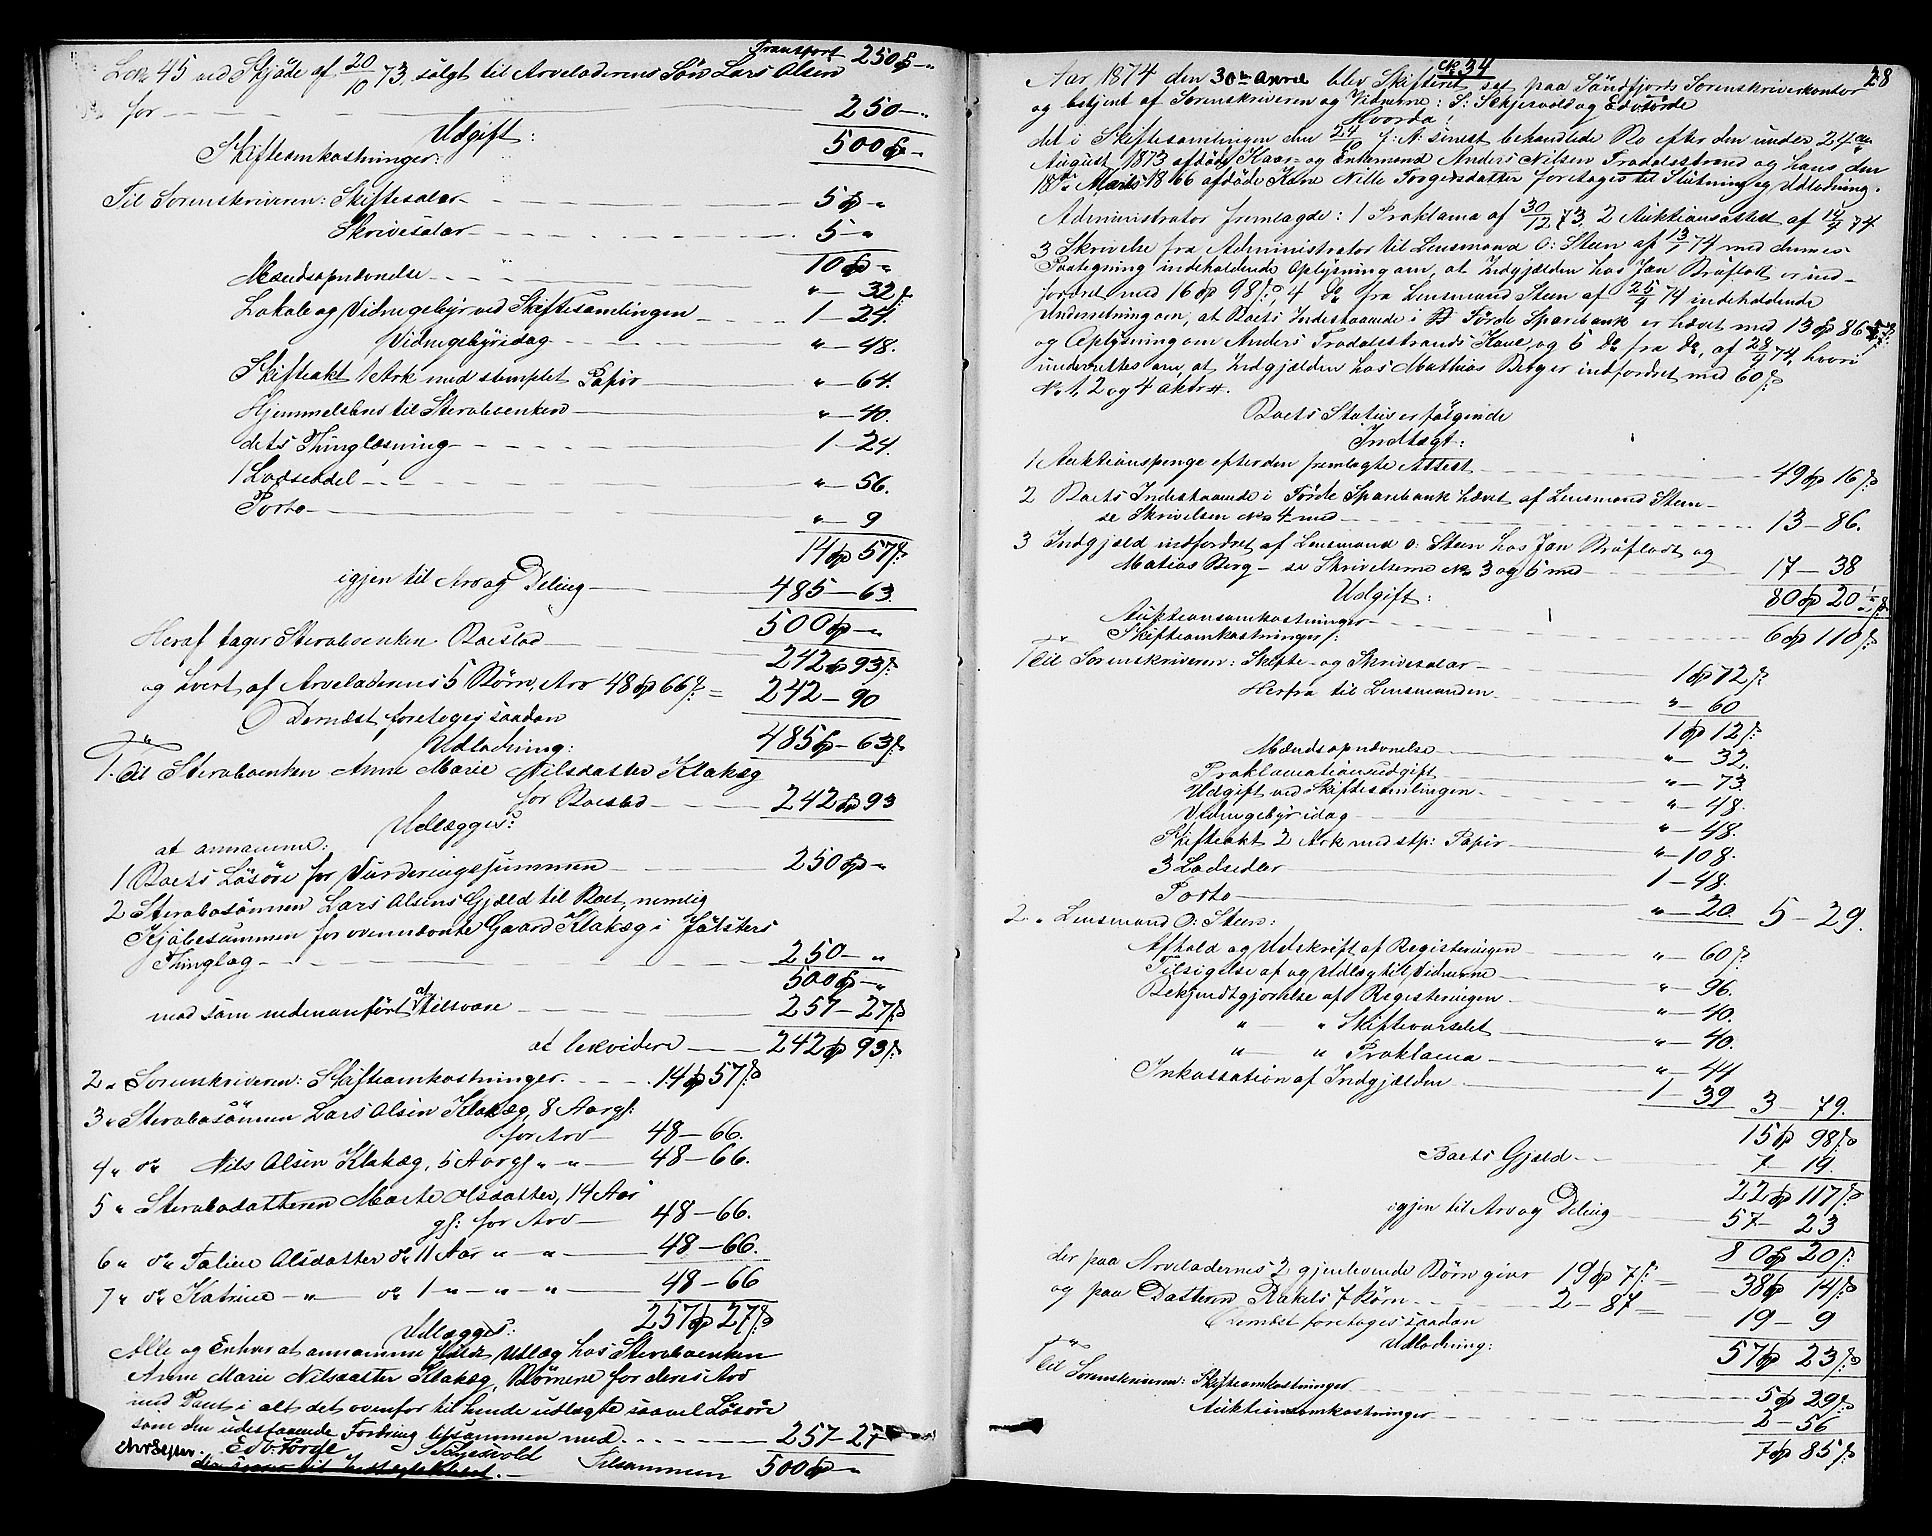 Transport 250 –„
L No 45 ved Skjøde af 20/10 73, solgt til Arveladerens Søn Lars Olsen
for — 250 –„
500 –„
Udgift:
Skifteomkostninger:
Til Sorenskriveren: Skiftesalær — 5 –„
Skrivesalær — 5 –„
10 –„
Mændsopnævnelse — „ – 32 ß
Lokale og Vidnegebyr ved Skiftesamlingen — 1 – 24.
Vidnegebyr idag — „ – 48.
Skifteakt 1 Ark med stemplet Papir — „ – 64.
Hjemmelsbrev til Sterboenken — „ – 40.
dets Thinglæsning — 1 – 24.
1 Lodseddel — „ – 56.
Porto — „ – 9
14 – 57 ß
igjen til Arv og Deling — 485 – 63.
500 –„
Heraf tager Sterboenken Boeslod — 242 93 ß
og hvert af Arveladerens 5 Børn, Arv 48 66 ß = 242 – 90
Dernæst foretoges saadan 485 – 63 ß
Udlodning:
1. Til Sterboenken Anne Marie Nilsdatter Klakæg
for Boeslod — 242 93
Udlægges:
at annamme:
1 Boets Løsøre for Vurderingssummen — 250 –„
2 Sterbosønnen Lars Olsens Gjæld til Boet, nemlig
Kjøbesummen for ovennævnte Gaard Klakæg i Jølsters
Thinglag — 250 – „
500 –„
mod som nedenanført at tilsvare — 257 – 27 ß
at likvidere — 242 93 ß
2 „ Sorenskriveren: Skifteomkostninger. — 14 57 ß
3 „ Sterbosønnen Lars Olsen Klakæg, 8 Aar gl:
for Arv — 48 – 66.
4 „ do Nils Olsen Klakæg, 5 Aar gl „ „ — 48 – 66.
5 „ Sterbodatteren Marte Olsdatter, 14 Aar
gl: for Arv — 48 – 66.
6 „ do Taline Olsdatter do 11 Aar „ „ — 48 – 66.
7 „ do Katrine „ do 1 „ „ „ — 48 – 66
257 27 ß
Udlægges:
Alle og Enhver at annamme Udlæg hos Sterboenken
Anne Marie Nilsdatter Klakæg, Børnene for deres Arv
med Pant i alt det ovenfor til hende udlagte saavel Løsøre
som den udestaaende Fordring tilsammen med — 257 – 27
Edv. Førde S. Skjervold Tilsammen 500 –„
28
No 34
Aar 1874 den 30te April blev Skifteret sat paa Søndfjords Sorenskriverkontor
og betjent af Sorenskriveren og Vidnerne: S: Skjervold og Edv. Førde
Hvorda:
det i Skiftesamlingen den 24/10 f: A: senest behandlede Bo efter den under 24de
August 1873 afdøde Kaar- og Enkemand Anders Nilsen Tradalsstrand og hans den
18de Marts 1866 afdøde Kone Nille Torgersdatter foretoges til Slutning og Udlodning.
Administrator fremlagde: 1 Proklama af 30/12 73, 2 Auktionsattest af 14/4 74
3 Skrivelse fra Administrator til Lensmand O: Steen af 13/1 74 med dennes
Paategning indeholdende Oplysning om, at Indgjælden hos Jan Bruflodt er ind-
fordret med 16 98 ß, 4 do fra Lensmand Steen af 25/4 74 indeholdende
Underretning om, at Boets Indestaaende i Førde Sparebank er hævet med 13 86 ß
og Oplysning om Anders Tradalsstrands Kone, og 5 do fra do, af 28/4 74, hvori
underrettes om, at Indgjælden hos Mathias Berg er indfordret med 60 ß
No 1, 2 og 4 aktr #.
Boets Status er følgende
Indtægt:
1 Auktionspenge efter den fremlagte Attest — 49 16 ß
2 Boets Indestaaende i Førde Sparebank hævet af Lensmand Steen –
se Skrivelsen No 4 med — 13 – 86.
3 Indgjæld indfordret af Lensmand O: Steen hos Jan Bruflodt og
Matias Berg – se Skrivelserne No 3 og 5 med — 17 – 38
Udgift: 80 20 ß
Auktionsomkostninger — 6 110 ß
Skifteomkostninger:
1 Til Sorenskriveren: Skifte- og Skrivesalær — 1 72 ß
Herfra til Lensmanden — „ – 60
1 12 ß
Mændsopnævnelse — „ – 32.
Proklamationsudgift — „ – 73.
Udgift ved Skiftesamlingen — „ – 48.
Vidnegebyr idag — „ – 48.
Skifteakt 2 Ark med stp: Papir — „ – 108.
3 Lodsedler — 1 – 48.
Porto — „ – 20. 5 – 29.
2 „ Lensmand O: Steen:
Afhold og Udskrift af Registeringen — „ – 60 ß
Tilsigelse af og Udlæg til Vidnerne — „ – 96.
Bekjendtgjørelse af Registeringen — „ – 40.
„ „ Skiftevarselet — „ – 40.
„ „ Proklama — „ – 44
Inkassation af Indgjælden — 1 – 39 3 – 79.
15 98 ß
Boets Gjæld — 7 – 19.
22 117 ß
igjen til Arv og Deling — 57 – 23
80 20 ß
der paa Arveladernes 2 gjenlevende Børn giver 19 7 ß = 38 14 ß
og paa Datteren Rakels 7 Børn — 2 – 87 = 19 – 9
hvorefter foretoges saadan
Udlodning: 57 23 ß
Til Sorenskriveren: Skifteomkostninger — 5 29 ß
Auktionsomkostninger — 2 – 56
7 85 ß